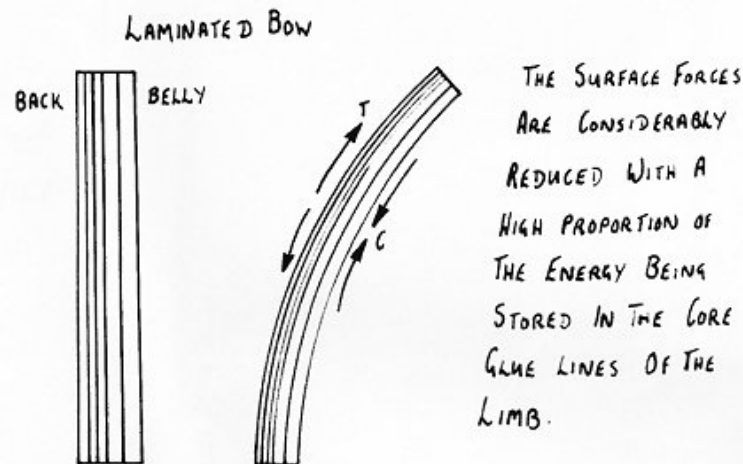 LAMINATED BOW
BACK
BELLY
T
C
THE SURFACE FORCES
ARE CONSIDERABLY
REDUCED WITH A
HIGH PROPORTION OF
THE ENERGY BEING
STORED IN THE CORE
GLUE LINES OF THE
LIMB.